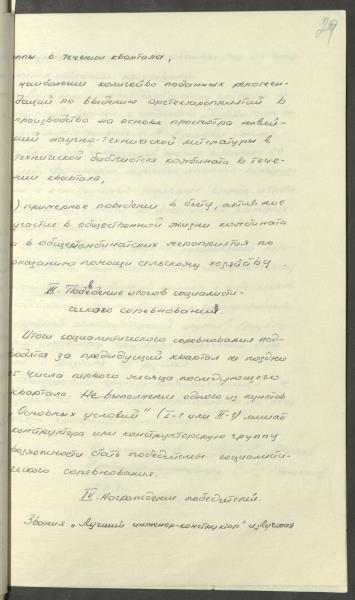 29
ппы в течении квартала,
наибольшее количество поданных рекомен-
даций по введению оргтехмероприятий в
производство на основе просмотра новей-
шей научно-технической литературы в
технической библиотеке комбината в тече-
нии квартала,
) примерное поведение в быту, активное
участие в общественной жизни комбината
и в общекомбинатских мероприятия по
оказанию помощи сельскому хозяйству.
III. Подведение итогов социалисти-
ческого соревнования.
Итоги социалистического соревнования под-
водятся за предыдущий квартал не позднее
числа первого месяца последующего
квартала. Не выполнение одного из пунктов
„Основных условий" (I-1 или II-1) лишает
конструктора или конструкторскую группу
возможности стать победителем социалисти-
ческого соревнования.
IV. Награждение победителей.
Звания „Лучший инженер-конструктор" и „Лучшая